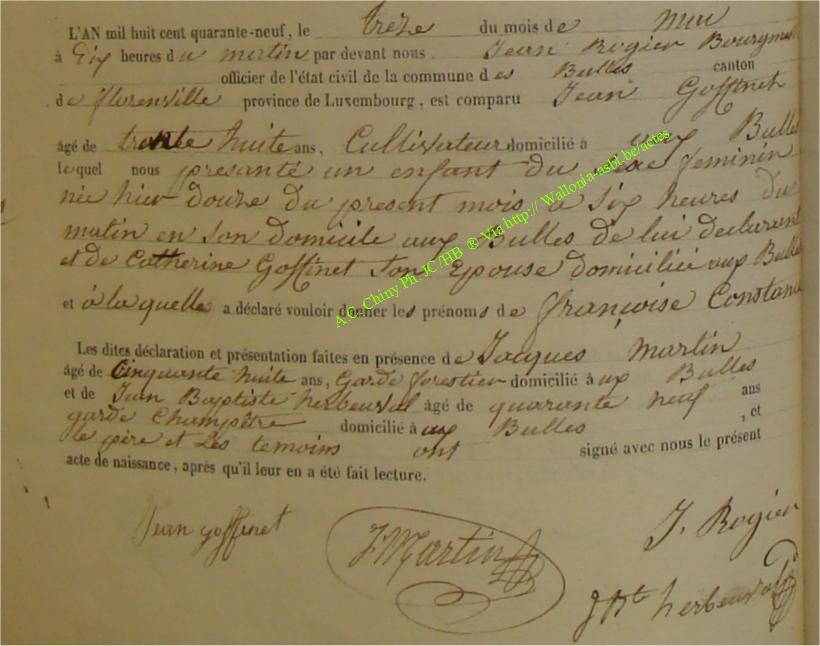 L'AN mil huit cent quarante-neuf, le treize du mois de Mai
à Dix heures du matin par devant nous Jean Rogier Bourgmestre
officier de l'état civil de la commune des Bulles canton
de florenville province de Luxembourg, est comparu Jean Goffinet
âgé de trente huite ans, Cultivateur domicilié à aux Bulles
lequel nous presanté un enfant du sexe feminin
née hier douze du present mois a six heures du
matin en son domicile aux Bulles de lui declarant
et de Catherine Goffinet son Epouse domiciliée aux Bulles
et à laquelle a déclaré vouloir donner les prénoms de françoise Constance
Les dites déclaration et présentation faites en présence de Jacques Martin
âgé de Cinquante huite ans, Garde forestier domicilié à aux Bulles
et de Jean Baptiste herbeuval âgé de quarante neuf ans
garde Champêtre domicilié à aux Bulles, et
le père et Les temoins ont signé avec nous le présent
acte de naissance, après qu'il leur en a été fait lecture.
Jean goffinet J Martin J. Rogier
J Bte herbeuval
A.C. Chiny Ph. JC/HB ® Via http:// Wallonia-asbl.be/actes